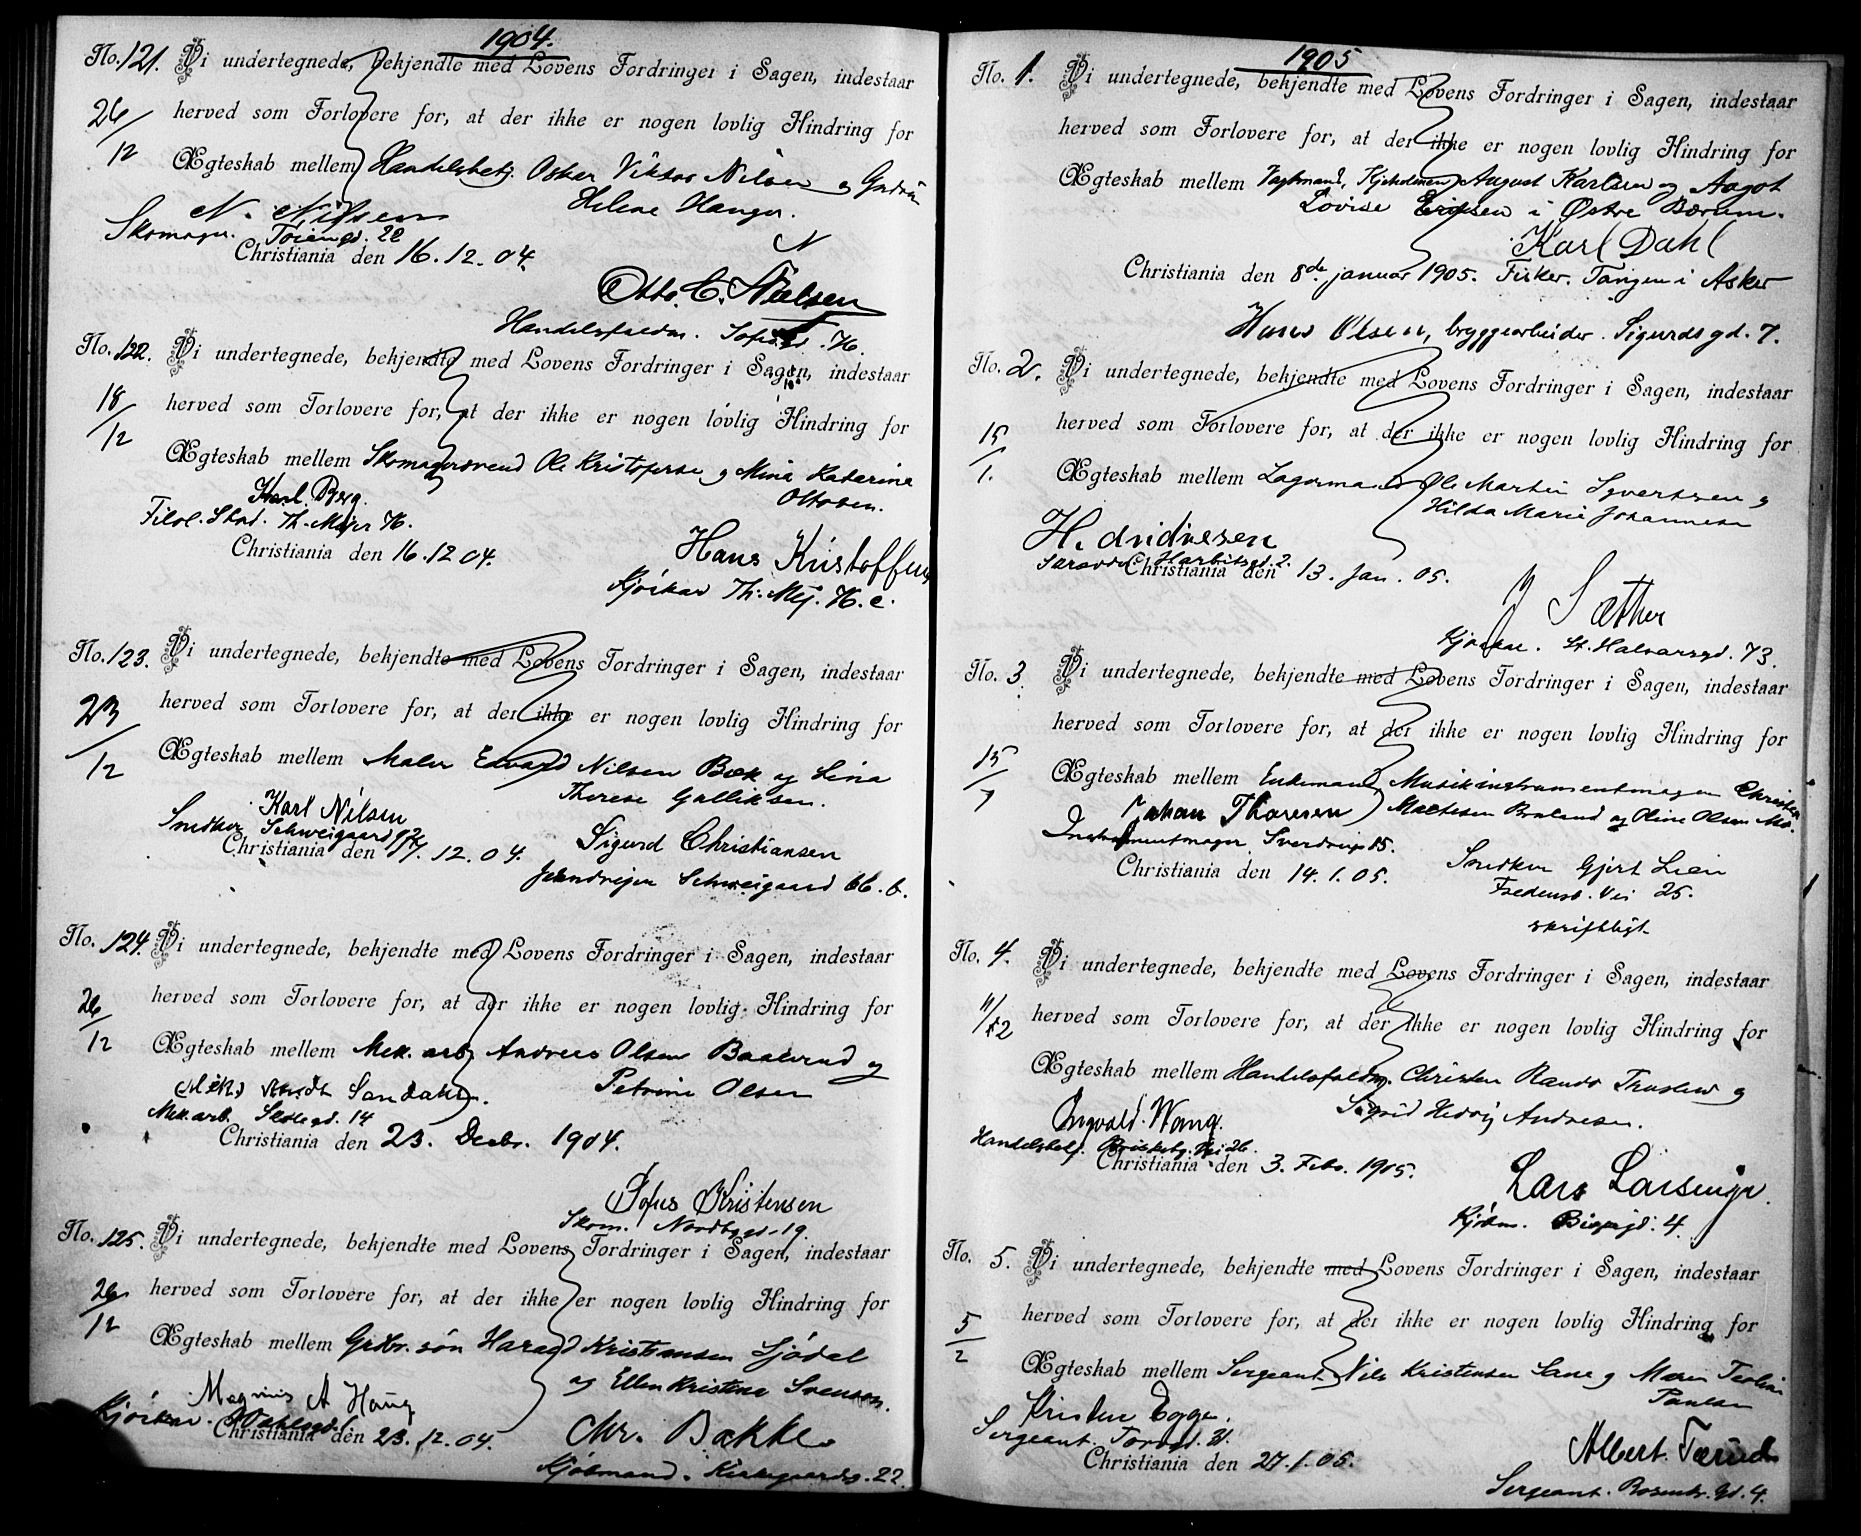 1904.
No. 121. Vi undertegnede, bekjendte med Lovens Fordringer i Sagen, indestaar
26/12 herved som Forlovere for, at der ikke er nogen lovlig Hindring for
Ægteskab mellem Handelsbetj. Oskar Viktor Nilsen og Gudrun
Helene Hanger.
N. Nilsen
Skomager. Tøiengd. 22
Christiania den 16.12.04.
Otto. C. Nielsen
Handelsfuldm. Sofiegd.
No. 122. Vi undertegnede, bekjendte med Lovens Fordringer i Sagen, indestaar
18/12 herved som Forlovere for, at der ikke er nogen lovlig Hindring for
Ægteskab mellem Skomagersvend Ole Kristofersen og Mina Katarina
Ottosen.
Karl Berg.
Filol. Stud. Th. Meyer
Christiania den 16.12 04.
Hans Kristoffersen
Kjørkar Th. Mej.
No. 123. Vi undertegnede, bekjendte med Lovens Fordringer i Sagen, indestaar
23/12 herved som Forlovere for, at der ikke er nogen lovlig Hindring for
Ægteskab mellem Maler Edvard Nilsen Bæk og Lina
Therese Gulliksen.
Karl Nilsen
Snedker Schweigaard
Christiania den 12.04.
Sigurd Christiansen
Schweigaard 66.b.
No. 124. Vi undertegnede, bekjendte med Lovens Fordringer i Sagen, indestaar
26/12 herved som Forlovere for, at der ikke er nogen lovlig Hindring for
Ægteskab mellem Mek. arb. Andreas Olsen Baalerud og
Petrine Olsen
Arndt Sandaker.
Mek. arb. 14
Christiania den 23. Decbr. 1904.
Sofus Kristensen
Skom. Nordbygd. 19.
No. 125. Vi undertegnede, bekjendte med Lovens Fordringer i Sagen, indestaar
26/12 herved som Forlovere for, at der ikke er nogen lovlig Hindring for
Ægteskab mellem Grdbr. søn Harald Kristiansen Sjødal
og Ellen Kristine Svensen.
Magnus A Haug
Kjørkar. Dahlsgd.
Christiania den 23.12.04.
Chr. Bakke
Kjøbmand. Kirkegaardsg. 22.
1905
No. 1. Vi undertegnede, bekjendte med Lovens Fordringer i Sagen, indestaar
herved som Forlovere for, at der ikke er nogen lovlig Hindring for
Ægteskab mellem Vagtmand, August Karlsen og Aagot
Lovise Eriksen i Østre Bærum.
Karl Dahl
Christiania den 8de januar 1905. Fisker. Tangen i Asker
Hans Olsen, bryggearbeider. Sigurdsgd. 7.
No. 2. Vi undertegnede, bekjendte med Lovens Fordringer i Sagen, indestaar
15/1. herved som Forlovere for, at der ikke er nogen lovlig Hindring for
Ægteskab mellem Lagermand Ole Martin Syvertsen og
Hilda Marie Johannesen
H.
Harbitzgd. 2.
Christiania den 13. Jan. 05.
J Sæther
Kjørkar. St. Halvarsgd. 73.
No. 3. Vi undertegnede, bekjendte med Lovens Fordringer i Sagen, indestaar
15/1 herved som Forlovere for, at der ikke er nogen lovlig Hindring for
Ægteskab mellem Enkemand, Musikinstrumentmager Christian
Johan Thoresen
Mathisen Braland og Oline Olsen Mo.
Instrumentmager, Sverdrups 15.
Christiania den 14.1.05.
Snedker Gjert Lien
Fredensb. Vei 25.
skriftligt
No. 4. Vi undertegnede, bekjendte med Lovens Fordringer i Sagen, indestaar
11/2 herved som Forlovere for, at der ikke er nogen lovlig Hindring for
Ægteskab mellem Handelsfuldm. Christen Rands Truslew og
Sigrid Hedvig Andresen.
Ingvald Wang.
Handelsbetj. Briskeby. Vei 26.
Christiania den 3. Febr. 1905.
Lars Larsen jr.
Kjøbm. 4.
No. 5. Vi undertegnede, bekjendte med Lovens Fordringer i Sagen, indestaar
5/2 herved som Forlovere for, at der ikke er nogen lovlig Hindring for
Ægteskab mellem Sergeant Nils Kristensen Lane og Maren Teoline
Paulsen
Kristen Egge.
Sergeant. Torvgd. 31.
Christiania den 27.1.05.
Albert Tærud
Sergeant. Rosenbr. Gd. 4.